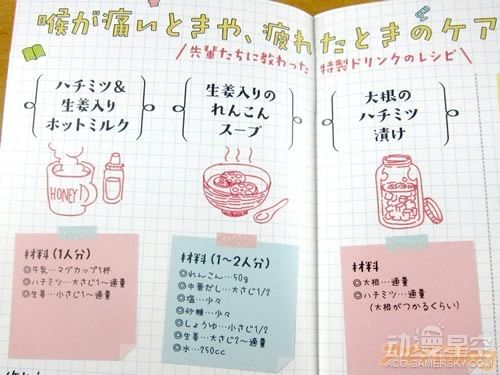 喉が痛いときや、疲れたときのケア
先輩たちに教わった 特製ドリンクのレシピ
ハチミツ&
生姜入り
ホットミルク
HONEY
材料(1人分)
◎牛乳…マグカップ1杯
◎ハチミツ…大さじ1~適量
◎生姜…小さじ1~適量
生姜入りの
れんこん
スープ
材料(1~2人分)
◎れんこん…50g
◎中華だし…大さじ1/2
◎塩…少々
◎砂糖…少々
◎しょうゆ…小さじ1/2
◎生姜…大さじ2~適量
◎水…250cc
大根の
ハチミツ
漬け
材料
◎大根…適量
◎ハチミツ…適量
(大根がつかるぐらい)
动漫星空
ACG.GAMERSKY.COM